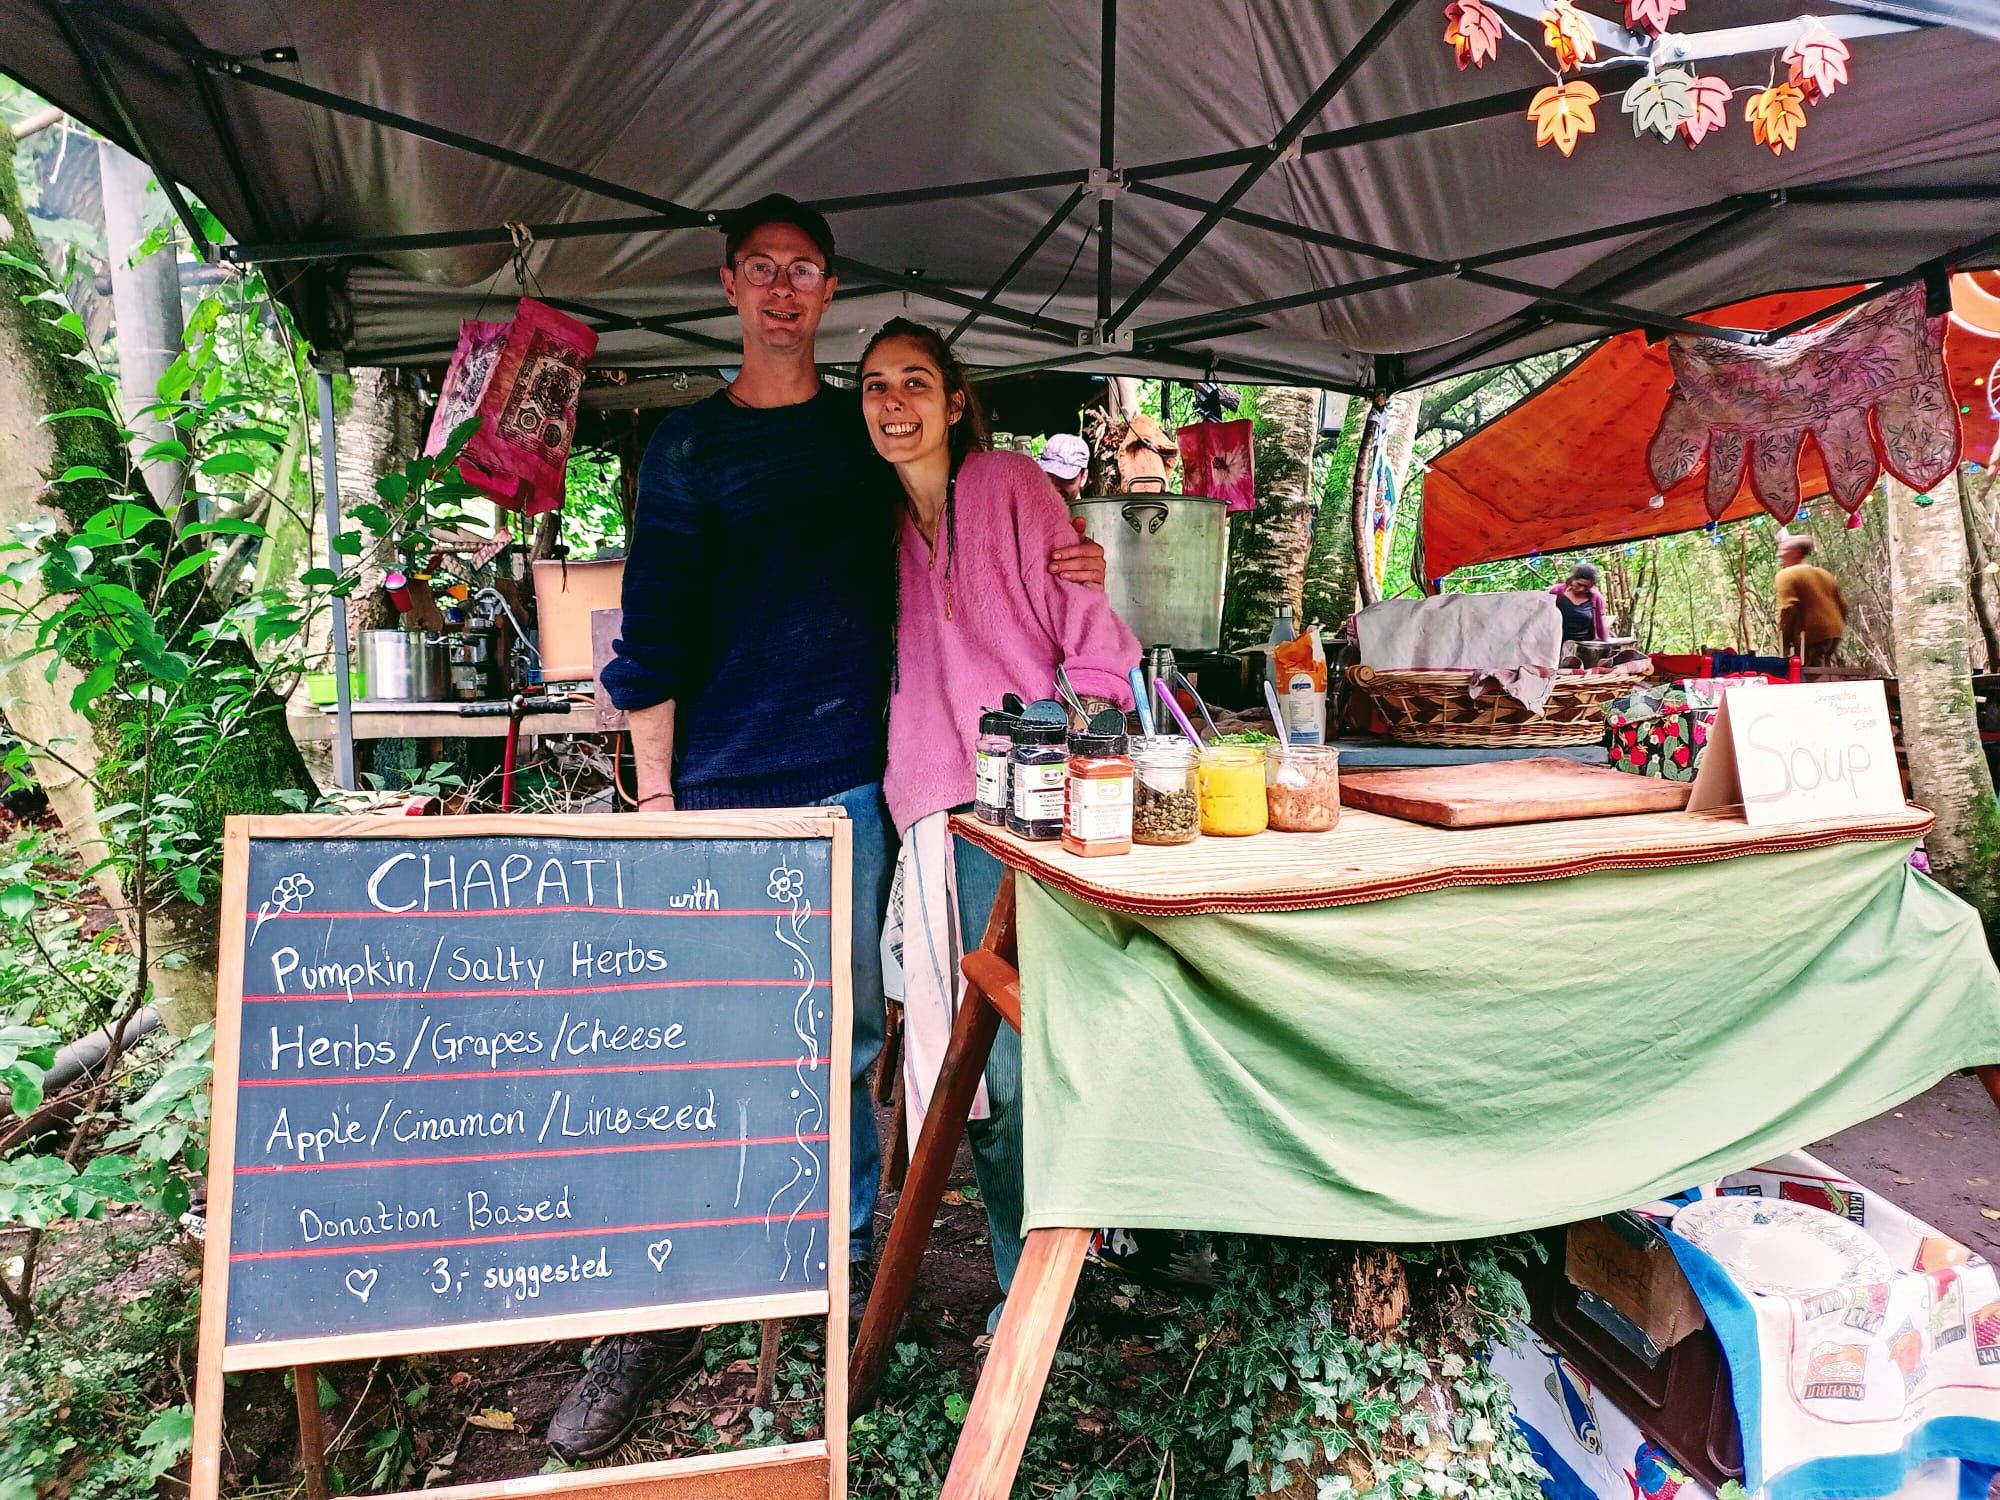 CHAPATI with
Pumpkin/Salty Herbs
Herbs/Grapes/Cheese
Apple/Cinamon/Lineseed
Donation Based
3,- suggested
Suggested
Donation
Soup
compost